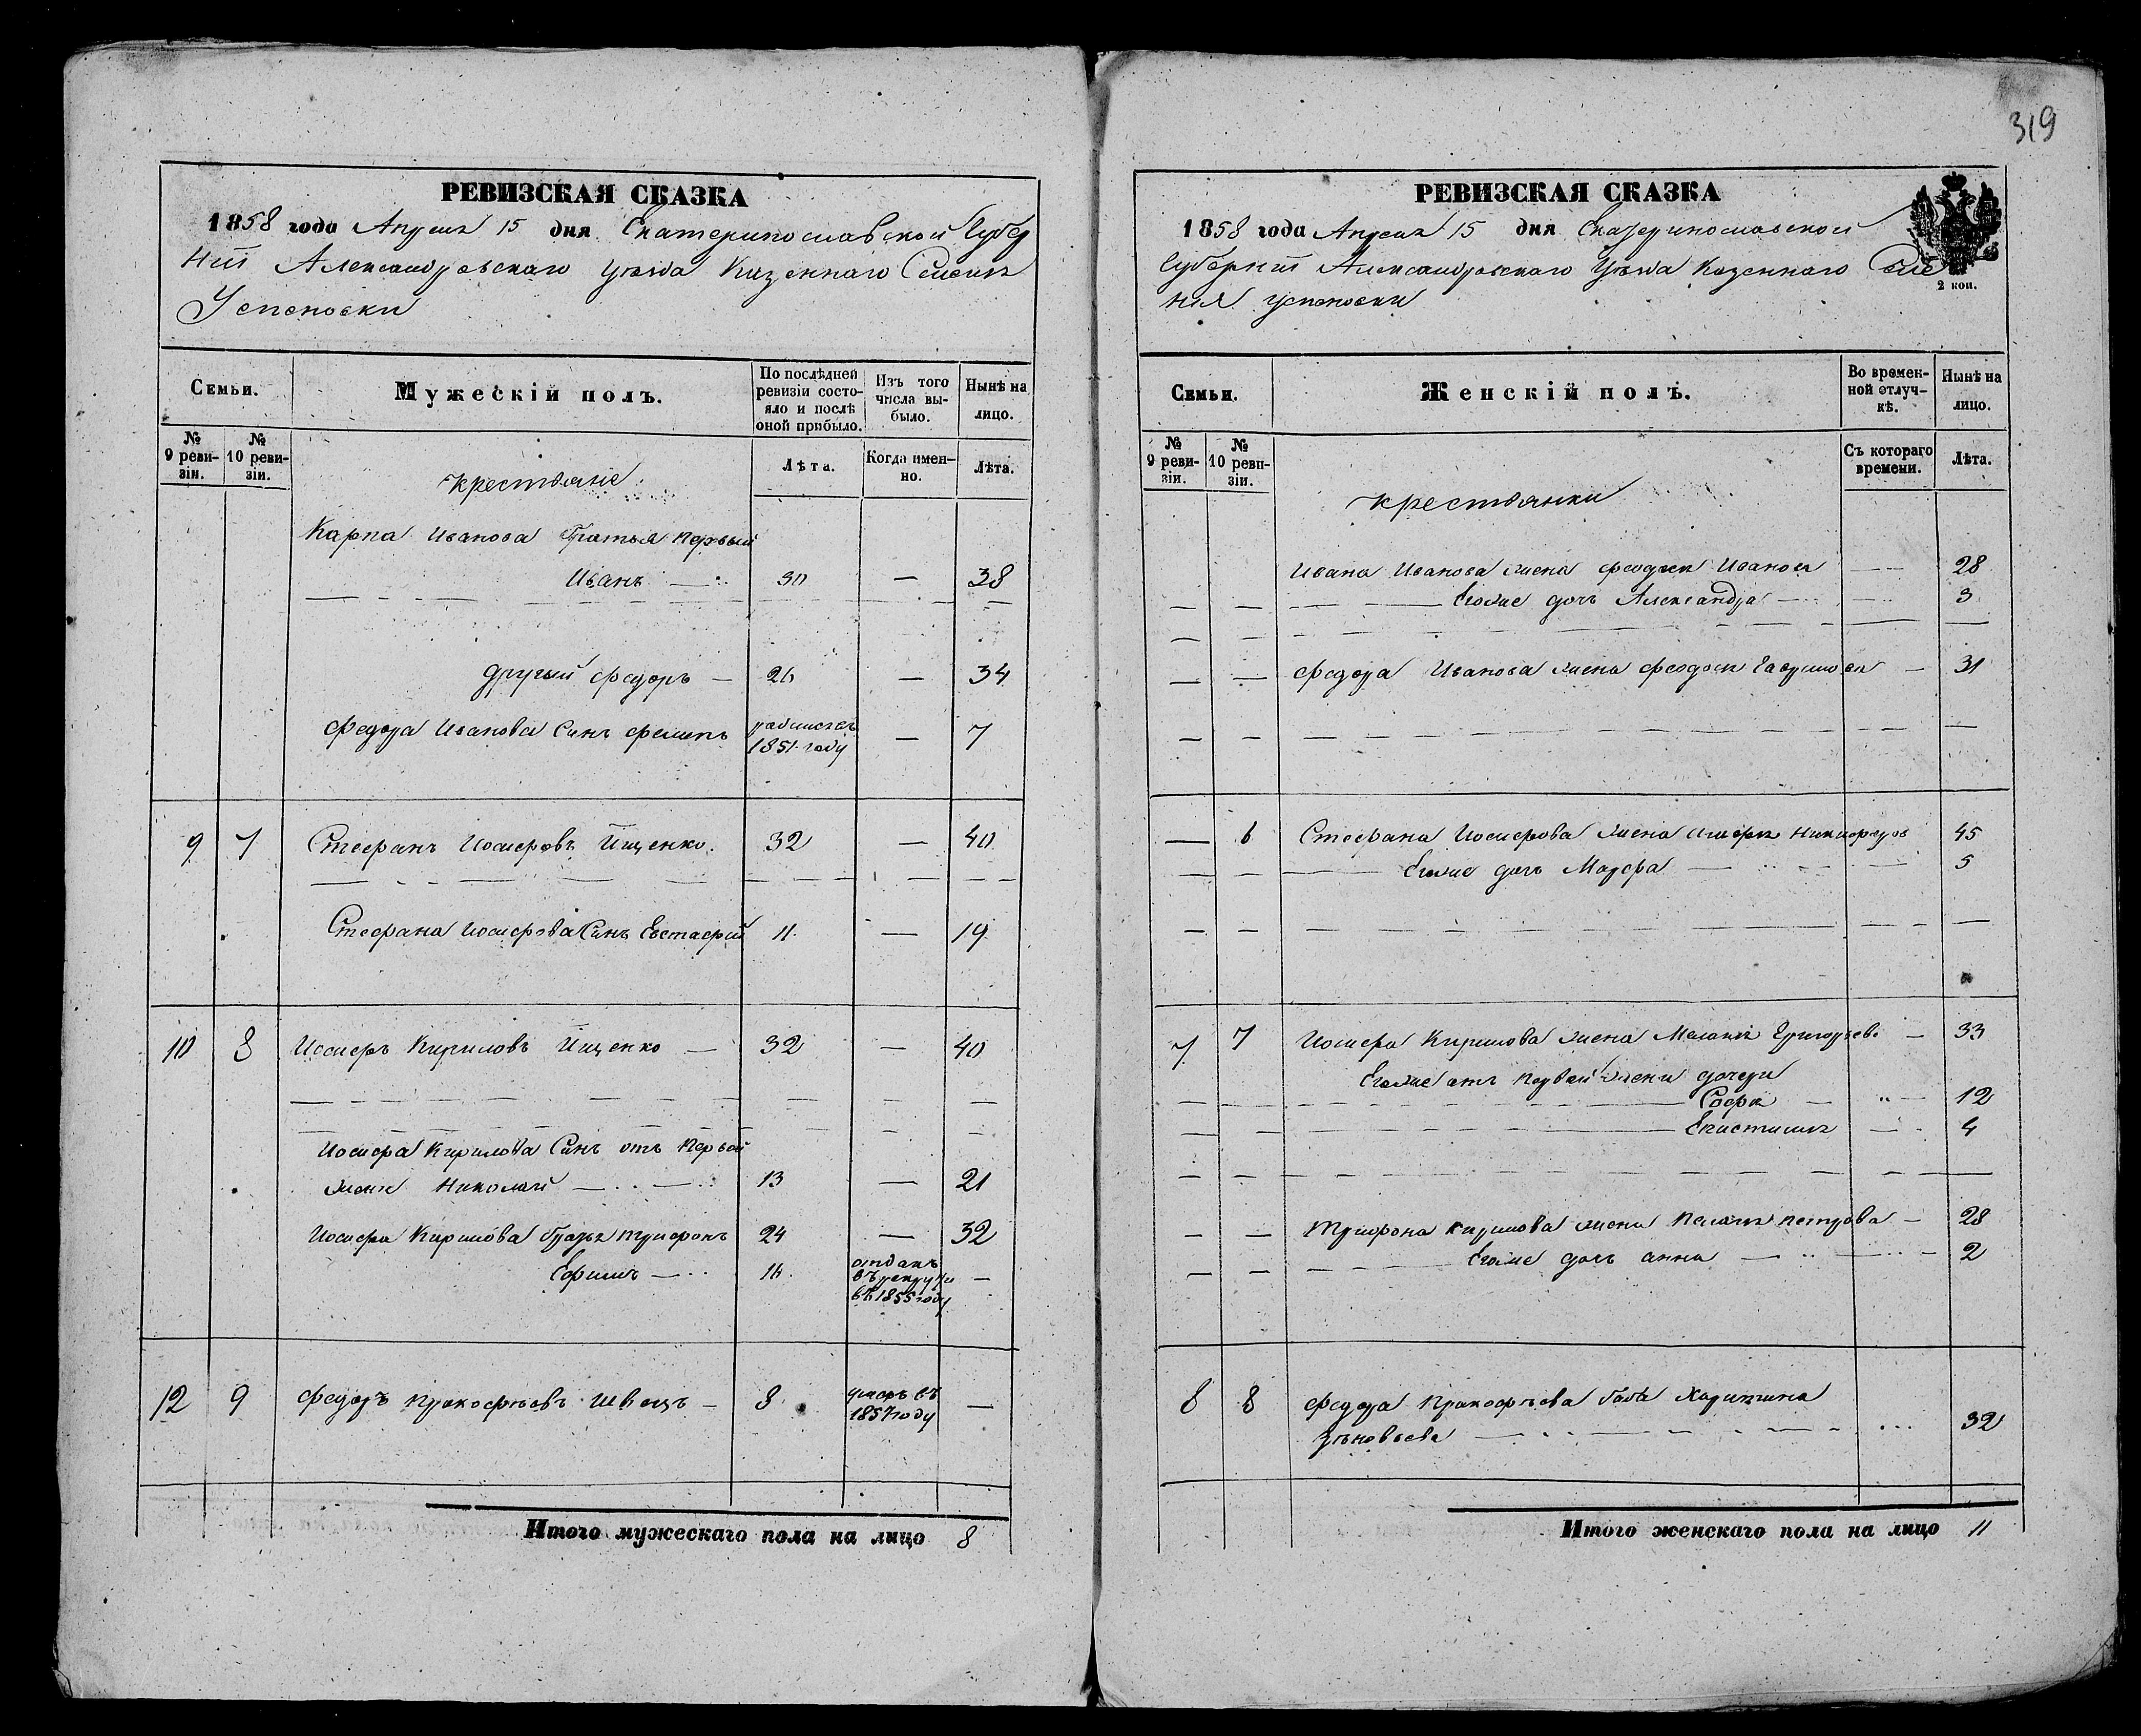 319
РЕВИЗСКАЯ СКАЗКА
1858 года Апреля 15 дня Екатеринославской Губер
ніи Александровскаго уѣзда Казеннаго Селенія
Успеновки
Семьи.
Мужескій полъ.
По послѣдней ревизіи состояло и послѣ оной прибыло.
Изъ того числа выбыло.
Нынѣ на лицо.
№ 9 ревизіи.
№ 10 ревизіи.
Лѣта.
Когда именно.
Лѣта.
Крестьяне
Карпа Иванова Братья Первый
Иванъ 30 — 38
другий Федоръ — 26 — 34
Федора Иванова Синъ Филипъ родился 1851 году — 7
9 7 Стефанъ Иосифовъ Ищенко. 32 — 40
Стефана Иосифова Синъ Евстафий 11 — 19
10 8 Иосифъ Кириловъ Ищенко — 32 — 40
Иосифа Кирилова Синъ отъ Первой
жени Николай 13 — 21
Иосифа Кирилова братья Трифонъ 24 — 32
Ефимъ 16 отданъ въ рекруты въ 1855 году —
12 9 Федоръ Прокофьевъ Швецъ — 8 умеръ въ 1857 году —
Итого мужескаго пола на лицо 8
РЕВИЗСКАЯ СКАЗКА
1858 года Апреля 15 дня Екатеринославской
Губерніи Александровскаго Уѣзда Казеннаго Селе
нія Успеновки
2 коп.
Семьи.
Женскій полъ.
Во временной отлучкѣ.
Нынѣ на лицо.
№ 9 ревизіи.
№ 10 ревизіи.
Съ котораго времени.
Лѣта.
Крестьянки
Ивана Иванова жена Иванова 28
Егоже дочь Александра 3
Федора Иванова жена Феодосія — 31
— 6 Стефана Иосифова жена Никифоров 45
Егоже дочь Марфа 5
7 7 Иосифа Кирилова жена Меланія Григорьев — 33
Егоже отъ первой жени дочери
Софія 12
Епистимія 4
Трифона Кирилова жена Пелагія Петрова — 28
Егоже дочь Анна 2
8 8 Федора Прокофьева баба Харитина
Зѣновьева 32
Итого женскаго пола на лицо 11